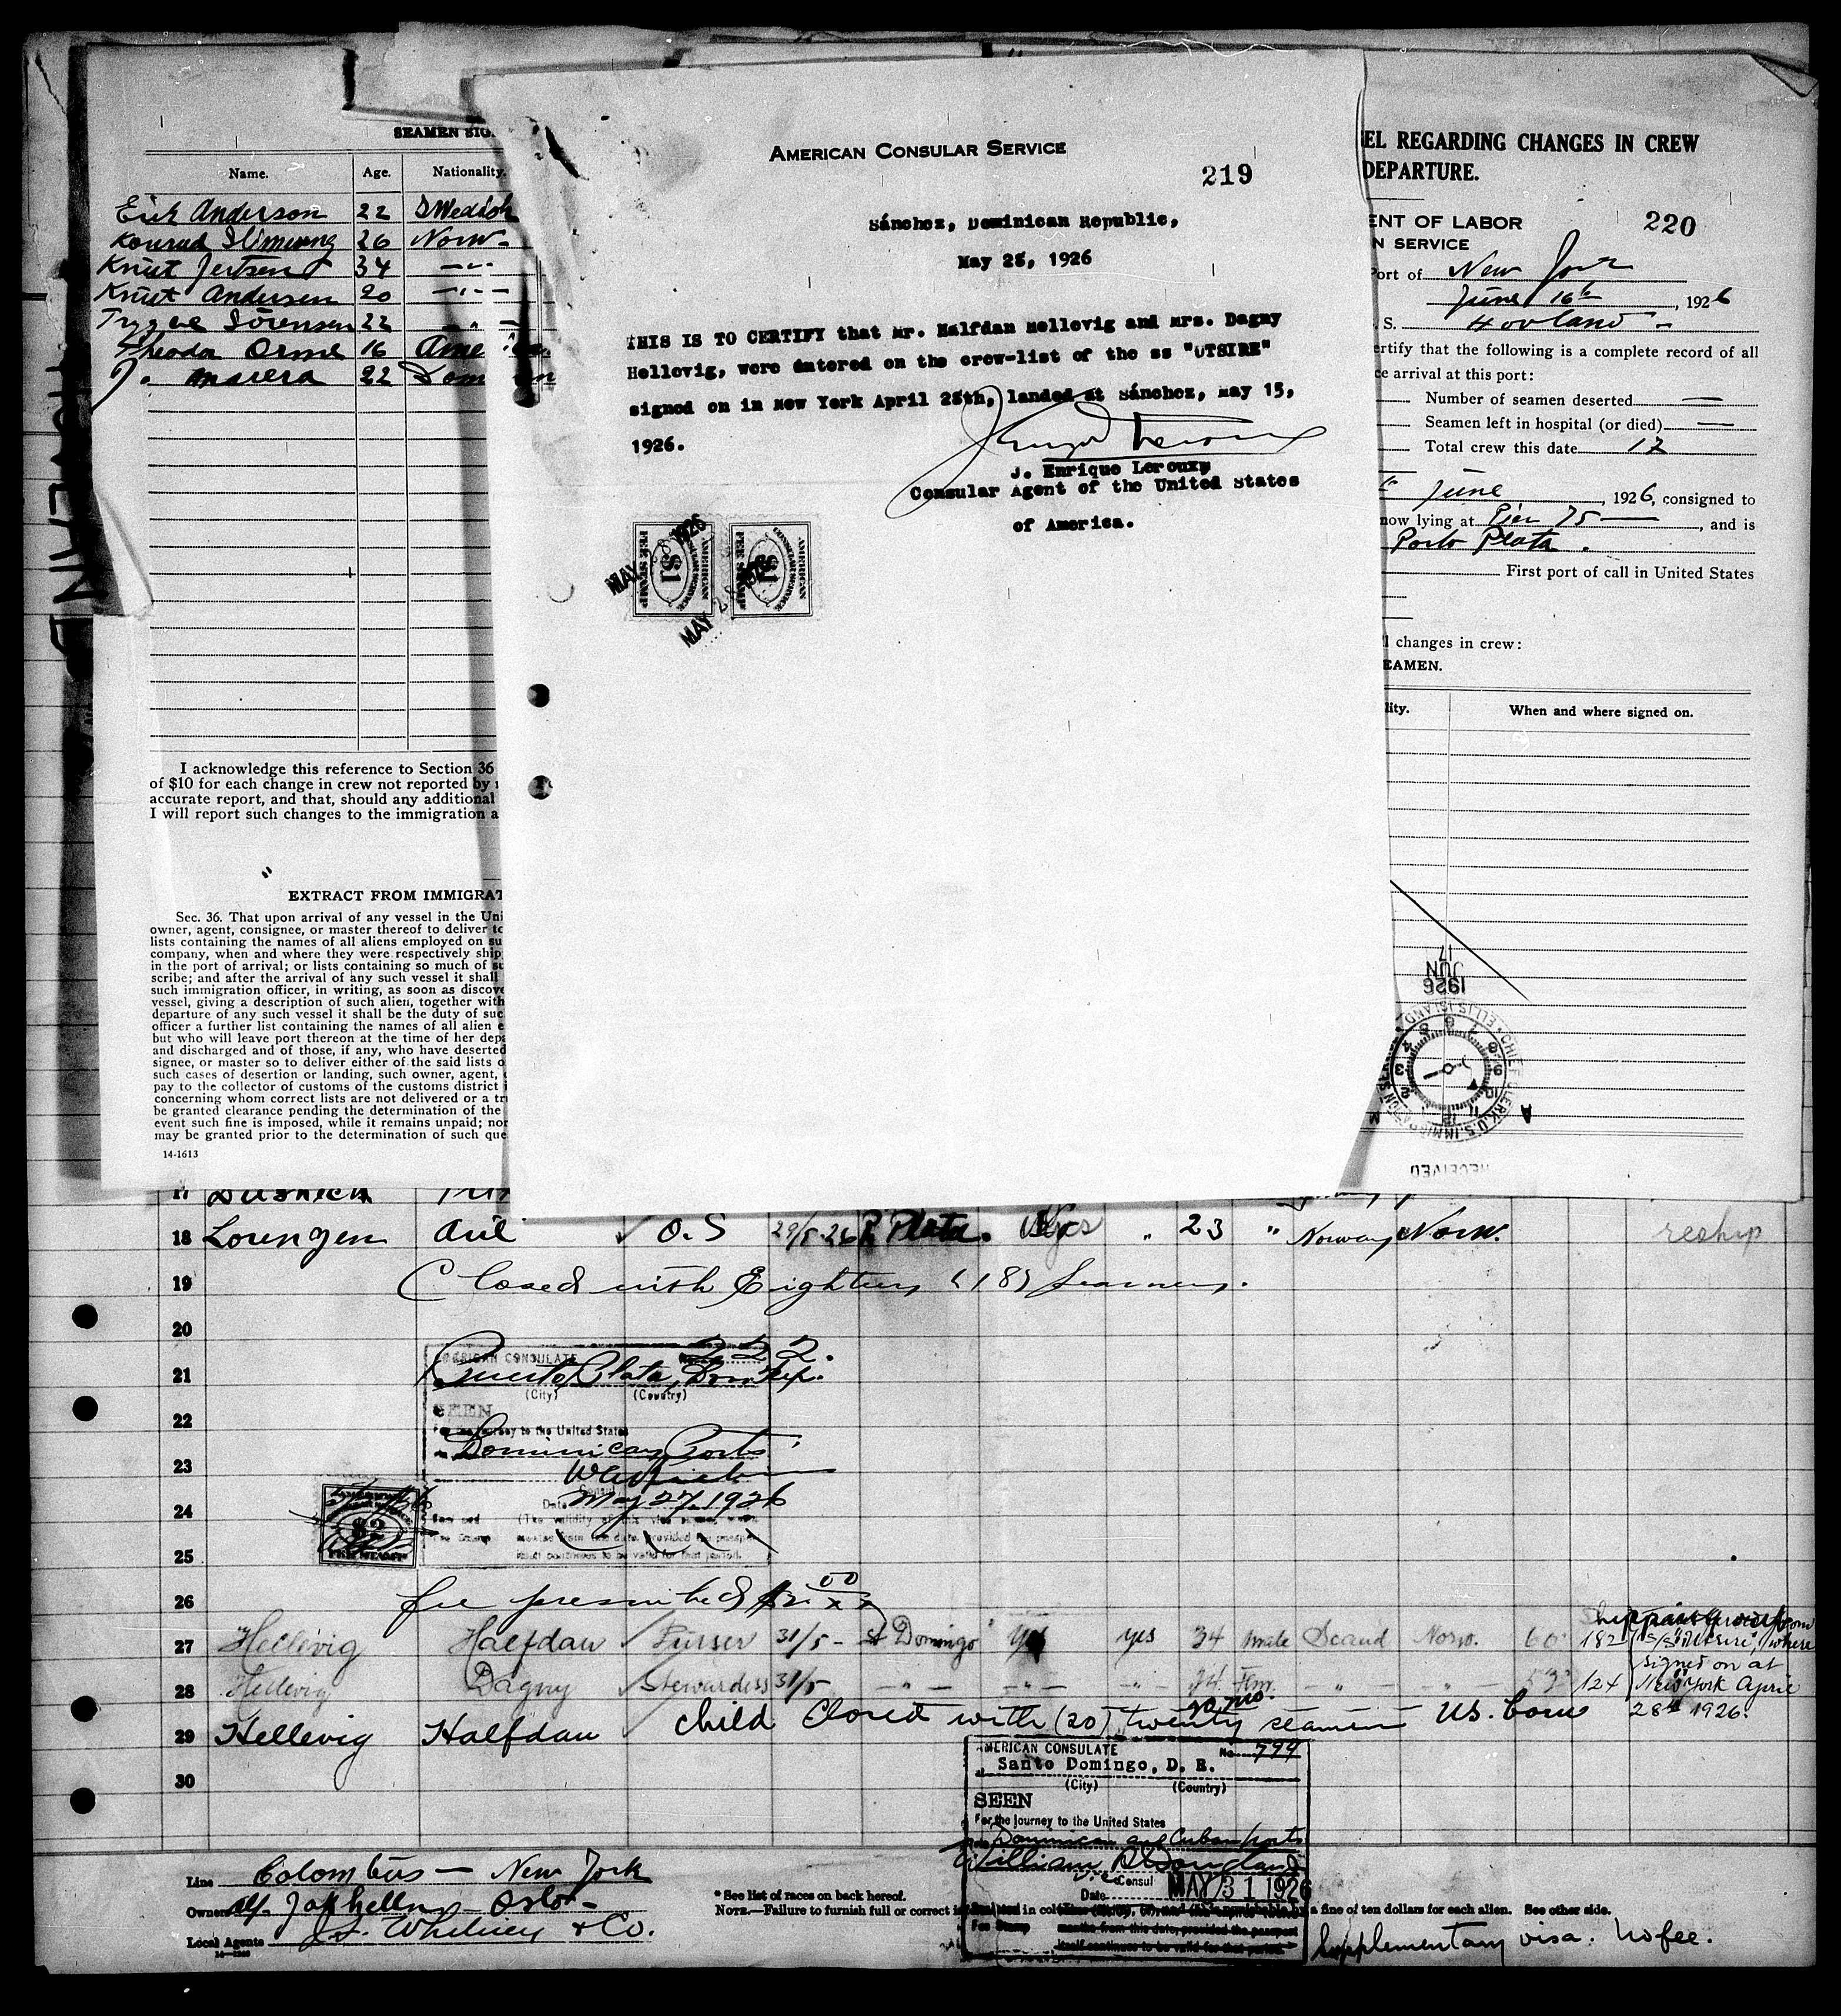 SEAMEN SIG
Name. Age. Nationality.
Erik Anderson 22 Swedish
Konrad 26 Norw-
Knut Jertsen 34 -"-
Knut Andersen 20 -"-
Trygve Sörensen 22 -"-
Theodor Orme 16 Ame
J. 22 Dom
I acknowledge this reference to Section 36
of $10 for each change in crew not reported by
accurate report, and that, should any additional
I will report such changes to the immigration a
EXTRACT FROM IMMIGRAT
Sec. 36. That upon arrival of any vessel in the Uni
owner, agent, consignee, or master thereof to deliver to
lists containing the names of all aliens employed on su
company, when and where they were respectively ship
in the port of arrival; or lists containing so much of su
scribe; and after the arrival of any such vessel it shall
such immigration officer, in writing, as soon as discove
vessel, giving a description of such alien, together with
departure of any such vessel it shall be the duty of suc
officer a further list containing the names of all alien e
but who will leave port thereon at the time of her depa
and discharged and of those, if any, who have deserted
signee, or master so to deliver either of the said lists o
such cases of desertion or landing, such owner, agent, c
pay to the collector of customs of the customs district i
concerning whom correct lists are not delivered or a tr
be granted clearance pending the determination of the
event such fine is imposed, while it remains unpaid; nor
may be granted prior to the determination of such que
14-1613
AMERICAN CONSULAR SERVICE
219
Sánchez, Dominican Republic,
May 28, 1926
THIS IS TO CERTIFY that Mr. Halfdan Hellevig and Mrs. Dagny
Hellevig, were entered on the crew-list of the ss "UTSIRE"
signed on in New York April 28th, landed at Sánchez, May 15,
1926.
J. Enrique Leroux
Consular Agent of the United States
of America.
AMERICAN CONSULAR SERVICE $1 FEE STAMP
MAY 28 1926
AMERICAN CONSULAR SERVICE $1 FEE STAMP
MAY 28 1926
EL REGARDING CHANGES IN CREW
DEPARTURE.
ENT OF LABOR 220
N SERVICE
Port of New York
June 16th, 1926
S. S. Hovland -
ertify that the following is a complete record of all
ce arrival at this port:
Number of seamen deserted —
Seamen left in hospital (or died) —
Total crew this date 12
June, 1926, consigned to
now lying at Pier 75 —, and is
Porto Plata.
First port of call in United States
l changes in crew:
EAMEN.
lity. When and where signed on.
1926 JUN 17
CHIEF CLERK, U.S. IMMIGRATION ELLIS ISLAND
RECEIVED
17
18 Lorenzen O.S 29/5-26 P. Plata. yes " 23 " Norway Norw. reship
19 Closed with Eighteen (18) Seamen.
20
21
22
23
24
25
AMERICAN CONSULATE 222.
Puerto Plata, Dom Rep.
(City) (Country)
SEEN
For the journey to the United States
Dominican Ports
Consul
Date May 27, 1926
$2 FEE STAMP
26 fee prescribed $2.00
27 Hellevig Halfdan Purser 31/5 - St Domingo yes yes 34 male Scand Norw. 182
28 Hellevig Dagny Stewardess 31/5 -"- -"- -"- 24 Fem. -"- -"- 124
signed on at
New York April
28th 1926.
29 Hellevig Halfdan child Closed with (20) twenty seamen US. born
30
AMERICAN CONSULATE No. 799
at Santo Domingo, D. R.
(City) (Country)
SEEN
For the journey to the United States
from Dominican and Cuban ports
William
Vice Consul
Date MAY 31 1926
Line Colombus — New York
Owners Oslo-
Local Agents Whitney & Co.
* See list of races on back hereof.
NOTE.—Failure to furnish full or correct
a fine of ten dollars for each alien. See other side.
Supplementary visa. No fee.